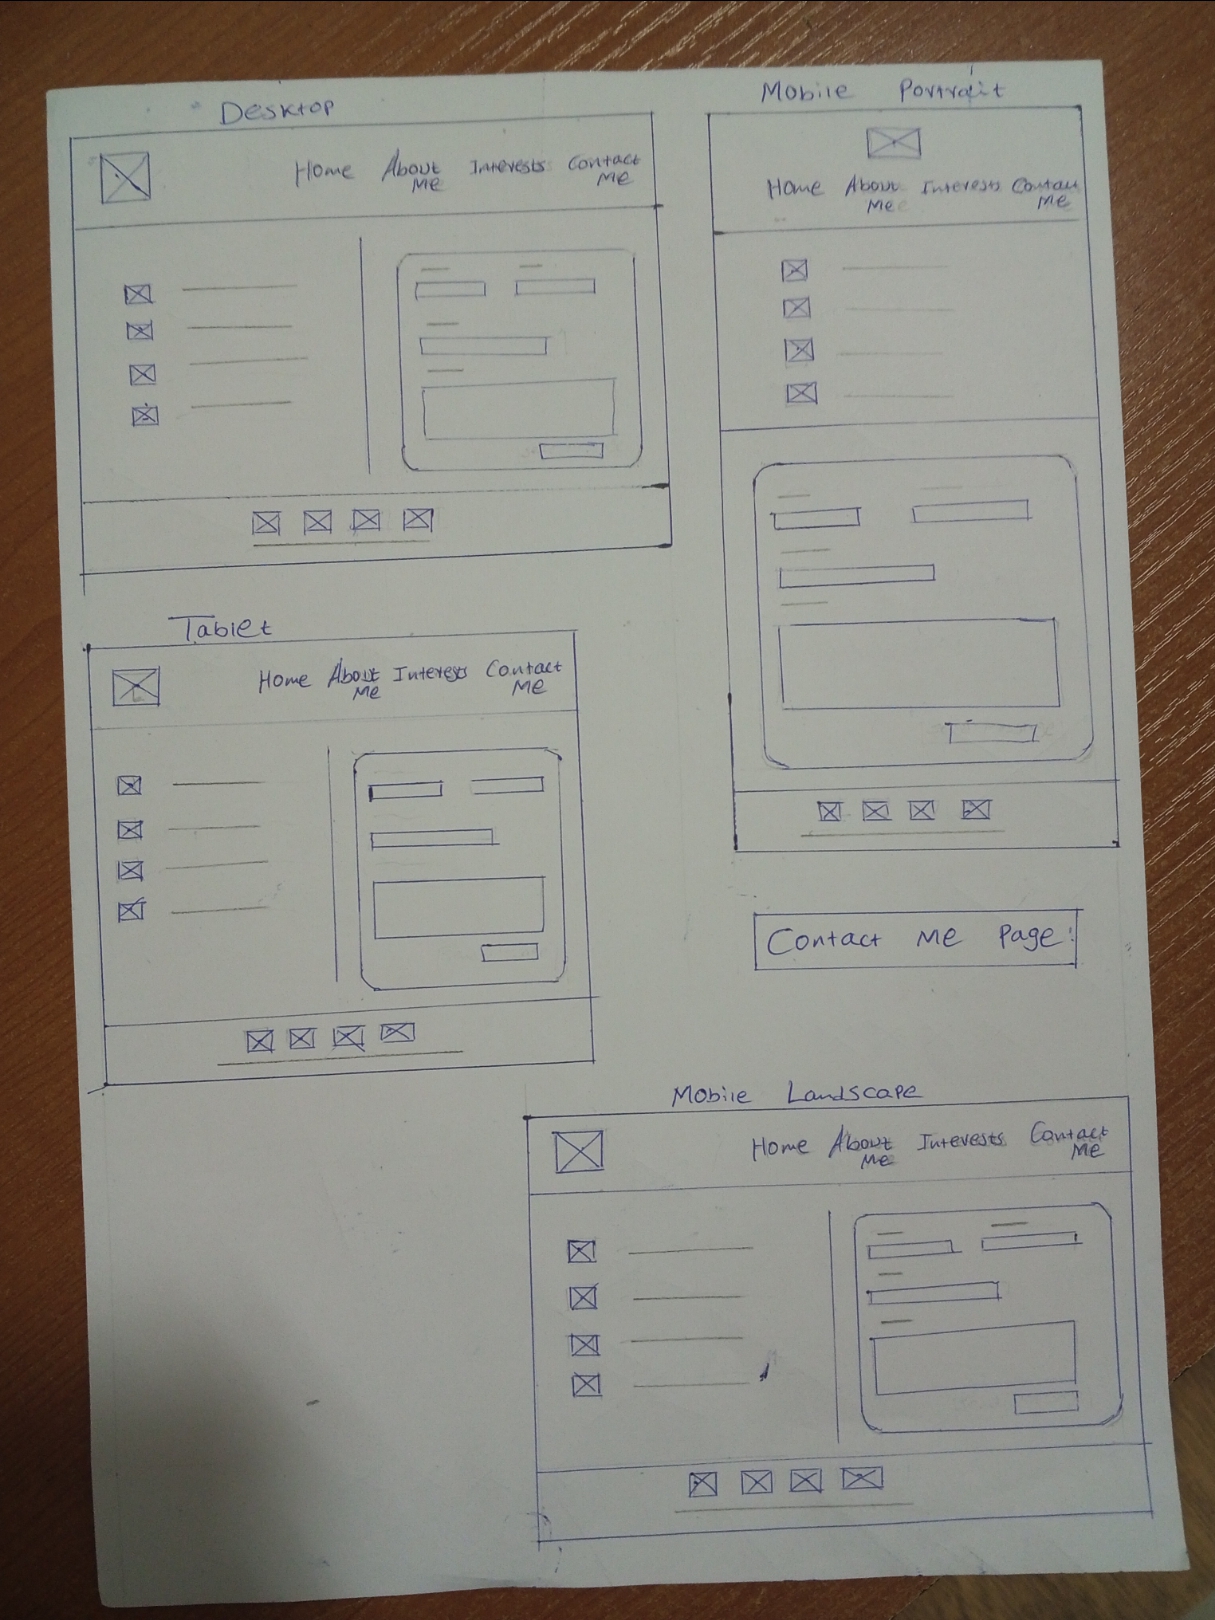 Desktop
Home About Interests Contact
Me Me
Mobile Portrait
Home About Interests Contact
Me Me
Tablet
Home About Interests Contact
Me Me
Contact Me Page:
Mobile Landscape
Home About Interests Contact
Me Me